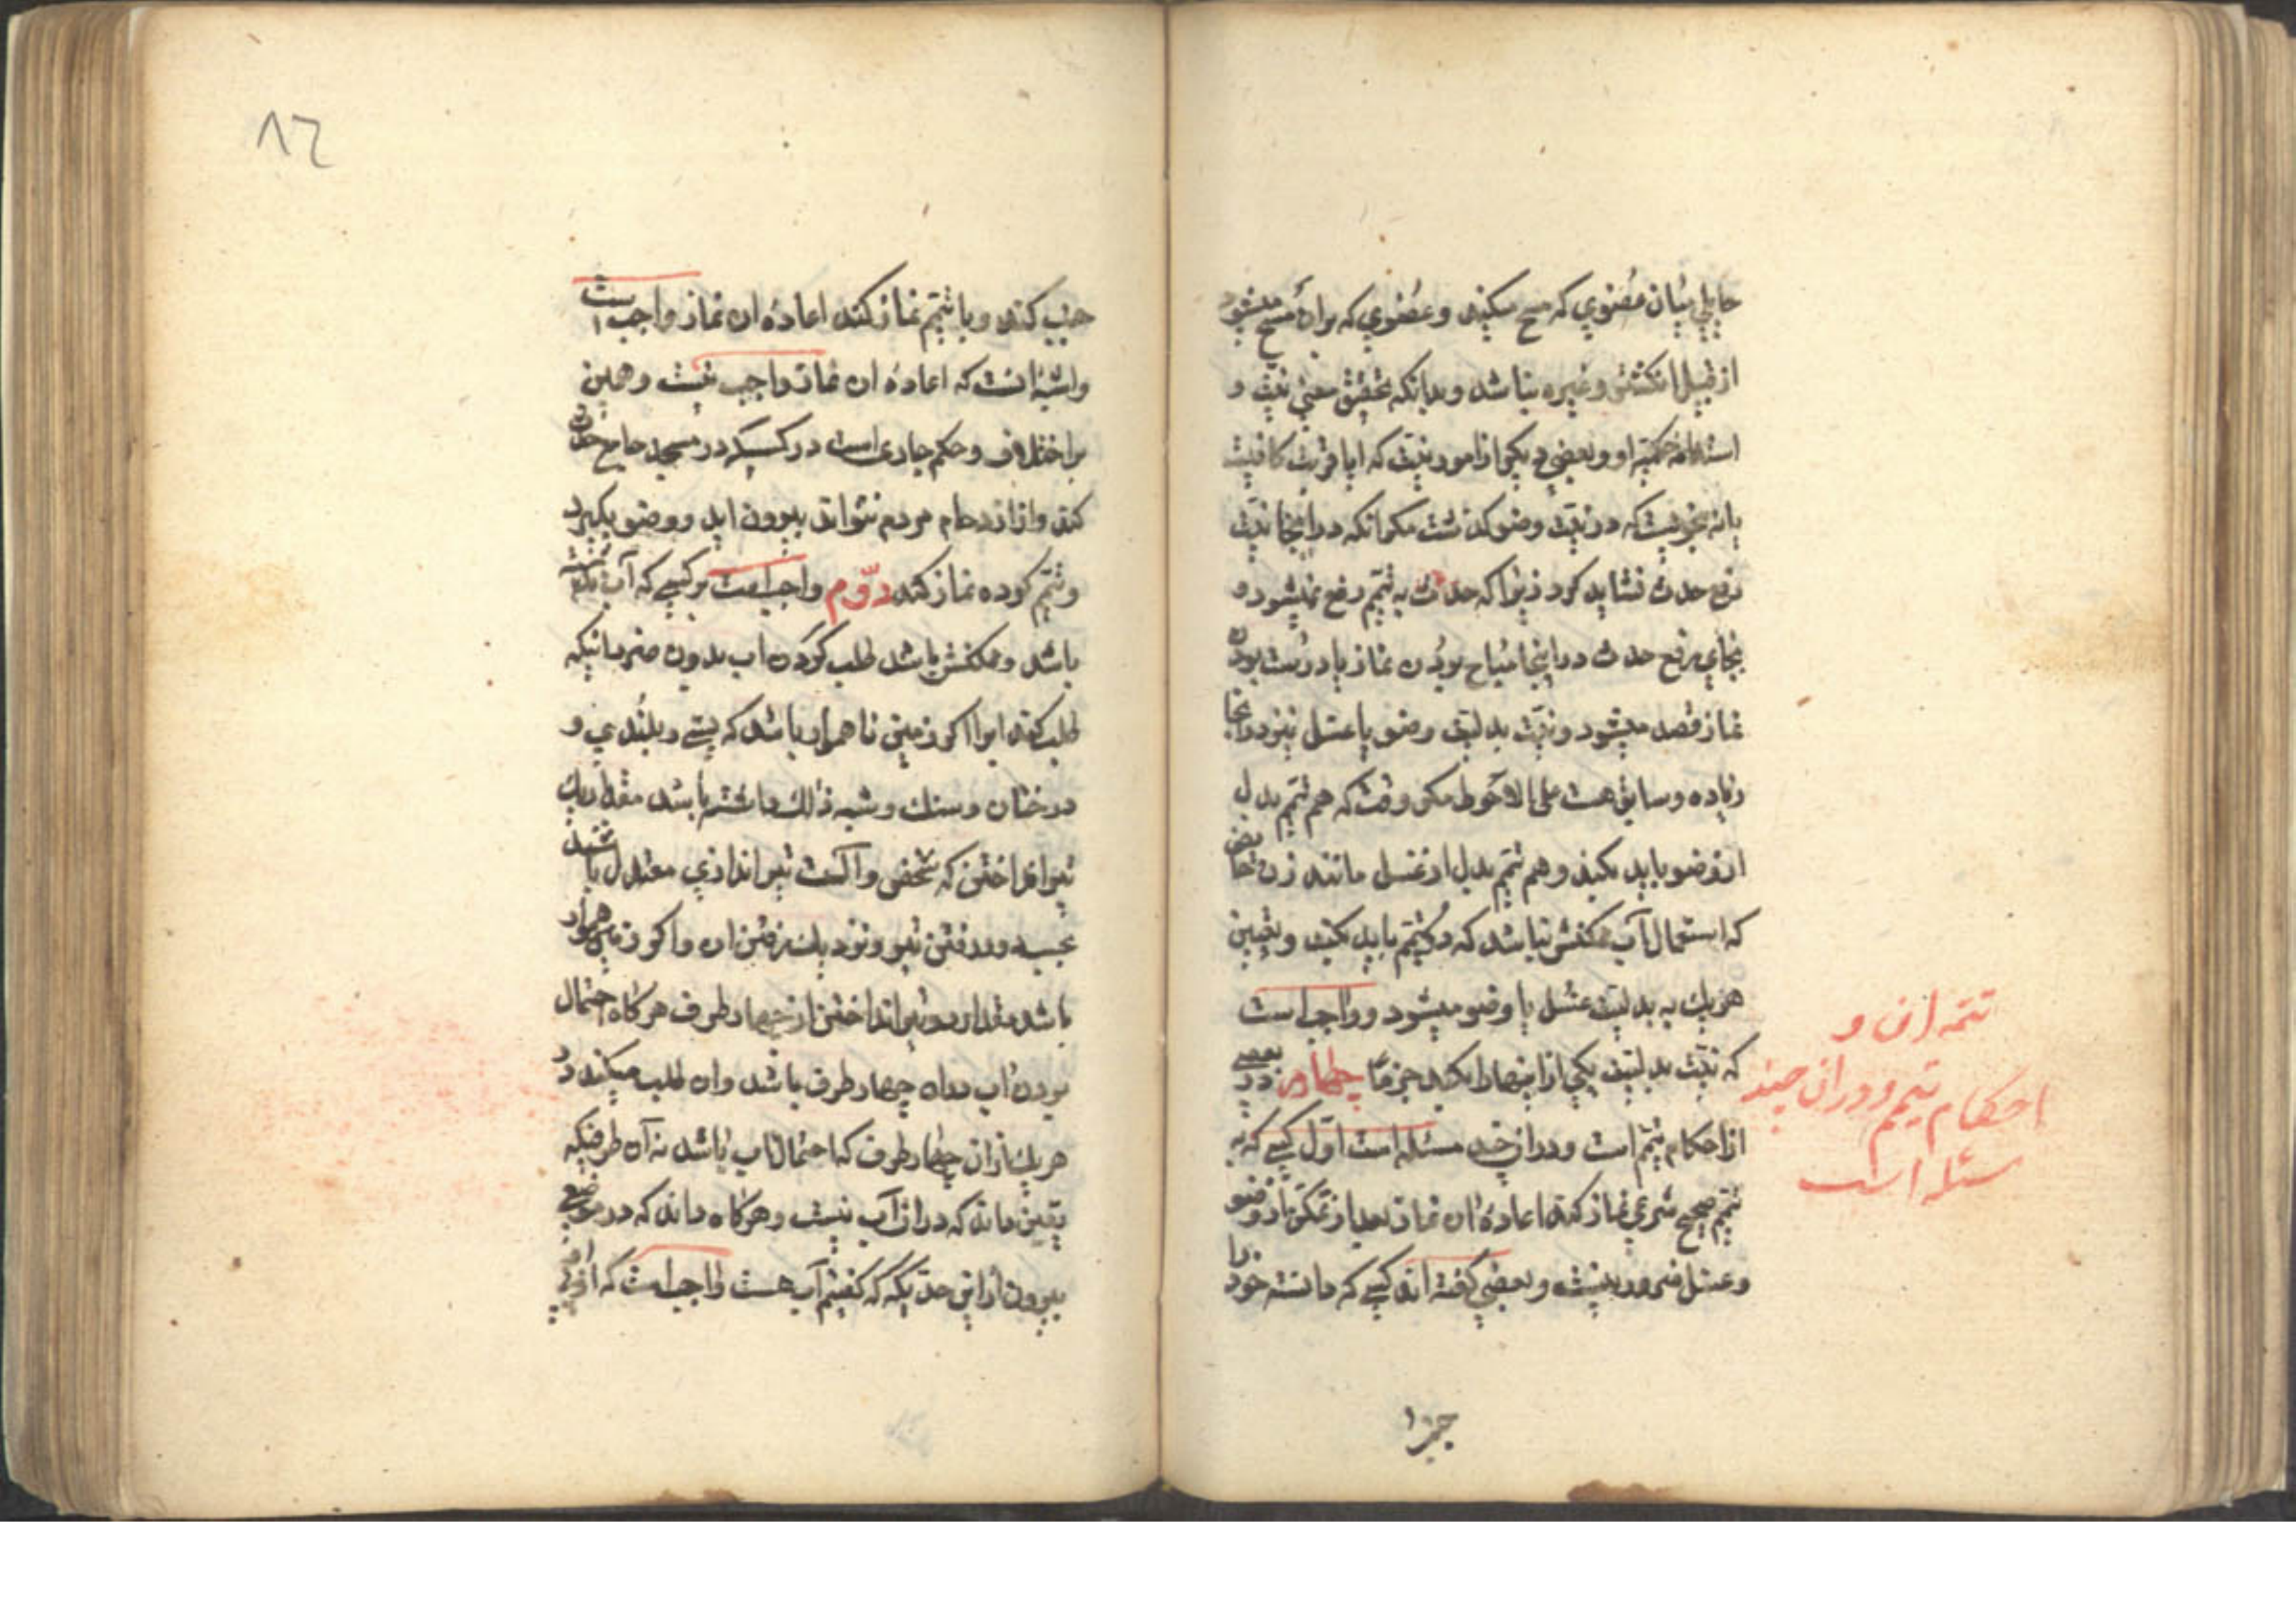 حایلی میان عضوی که مسح میکند و عضوی که بران مسح میشود
از قبیل انکشتر و غیره نباشد و بدانکه تحقیق معنی نیت و
استدامه حکمیه او و بعضی دیکر از امور نیت که ایا قربت کافیست
یا نه بنحویست که در نیت وضو کذشت مکر انکه در اینجا نیت
رفع حدث نشاید کرد زیرا که حدث به تیمم رفع نمیشود و
بجای رفع حدث در اینجا مباح بودن نماز یا درست بودن
نماز قصد میشود و نیت بدلیت وضو یا غسل نیز در اینجا
زیاده و سابق هست علی الاحوط مکر وقت که هم تیمم بدل
از وضو باید بکند و هم تیمم بدل از غسل مانند زن حائض
که استعمال آب ممکنش نباشد که دو تیمم باید بکند و تعیین
هر یک به بدلیت غسل یا وضو میشود و واجب است
که نیت بدلیت یکی از اینها را بکند جزماً چهارم در بعضی
از احکام تیمم است و در ان چند مسئله است اول کسی که به
تیمم صحیح شرعی نماز کند اعادهٔ ان نماز بعد از تمکن از وضو
و غسل ضرور نیست و بعضی کفته اند کسی که دانسته خود را
تتمه ان و
احکام تیمم و در ان چند
مسئله است
جنب
۸۲
جنب کند و با تیمم نماز کند اعادهٔ ان نماز واجب است
و اشبه انست که اعادهٔ ان نماز واجب نیست و همین
اختلاف و حکم جاری است در کسیکه در مسجد جامع حدث
کند و از ازدحام مردم نتواند بیرون اید و وضو بکیرد
و تیمم کرده نماز کند دوّم واجبست بر کسی که آب نداشته
باشد و ممکنش باشد طلب کردن اب بدون ضرر مانیکه
طلب کند ابرا اکر زمین ناهموار باشد که پستی و بلندی و
درختان و سنک و شبه ذلک داشته باشد مقدار یک
تیر انداختن که شخص و آلت تیر اندازی معتدل باشند
بحسب در رفتن تیر و زود بزمین ان و اکر زمین هموار
باشد مقدار دو تیر انداختن از چهار طرف هر کاه احتمال
بودن اب در ان چهار طرف باشد و ان طلب میکند در
هر یک از ان چهار طرف که احتمال اب باشد نه آن طرفیکه
یقین داند که در ان آب نیست و هر کاه داند که در موضعی
بیرون از این حد یکه که کفتیم آب هست واجبست که